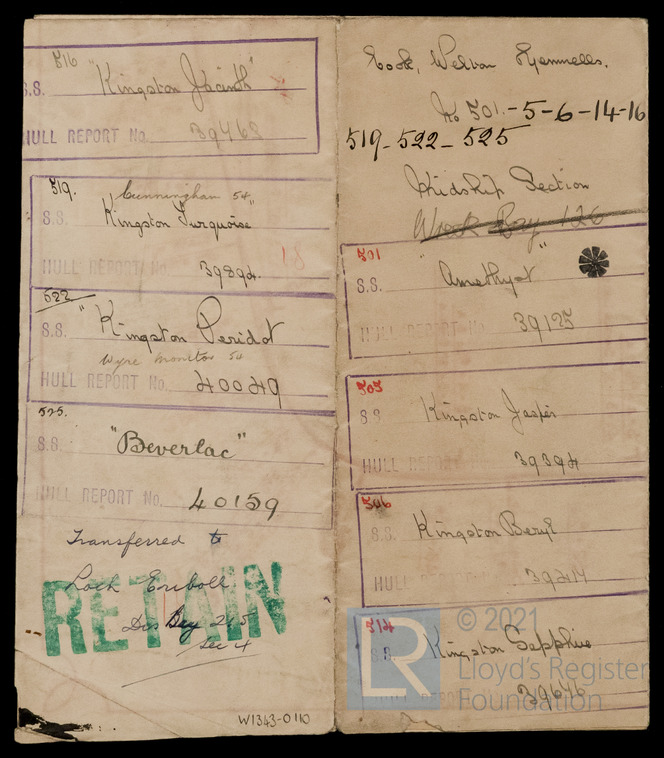 516
"Kingston Jacinth"
S.S.
HULL REPORT No. 39468
519.
Cunningham 54.
S.S. Kingston Turquoise
18
HULL REPORT No. 39894.
522
S.S. "Kingston Peridot
Wyre Monitor 54
HULL REPORT No. 40049
525.
S.S. "Beverlac"
HULL REPORT No. 40159
Transferred to
Loch Eriboll.
RETAIN
Dis Bay 215
Sec 4
W1343-0110
Cook, Welton Gemmells.
No 501.-5-6-14-16
519-522-525
Midship Section
501
S.S. "Amethyst"
HULL REPORT No. 39125
505
S.S. Kingston Jasper
HULL REPORT No. 39394
506
S.S. Kingston Beryl
HULL REPORT No.
514
S.S. Kingston Sapphire
HULL REPORT No. 39676
© 2021
LR
Lloyd's Register
Foundation